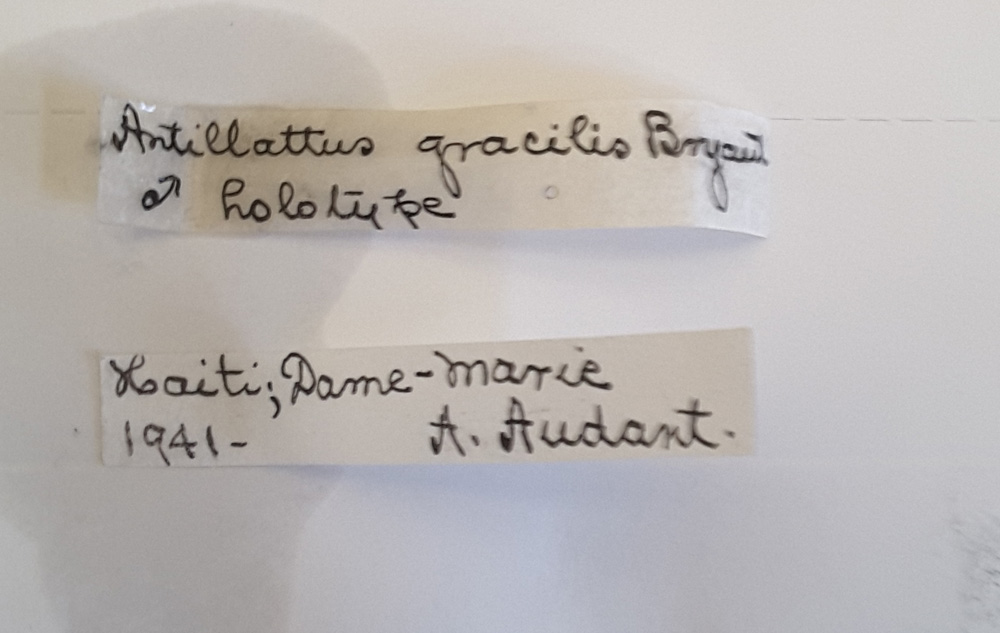 Antillattus gracilis Bryant
♂ holotype
Haiti; Dame-Marie
1941- A. Audant.